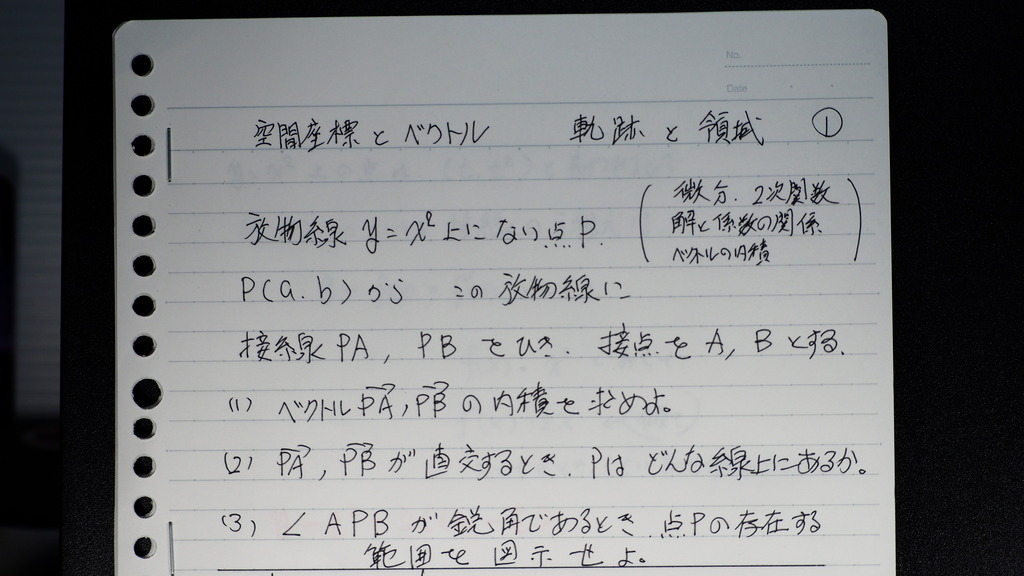 No.
Date
空間座標とベクトル 軌跡と領域 ①
(微分、2次関数
解と係数の関係
ベクトルの内積)
放物線 y=x² 上にない点P.
P(a.b)から この放物線に
接線PA, PBをひき、接点をA, Bとする.
(1) ベクトルPA→, PB→の内積を求めよ。
(2) PA→, PB→が直交するとき、Pはどんな線上にあるか。
(3) ∠APBが鋭角であるとき、点Pの存在する
範囲を図示せよ。